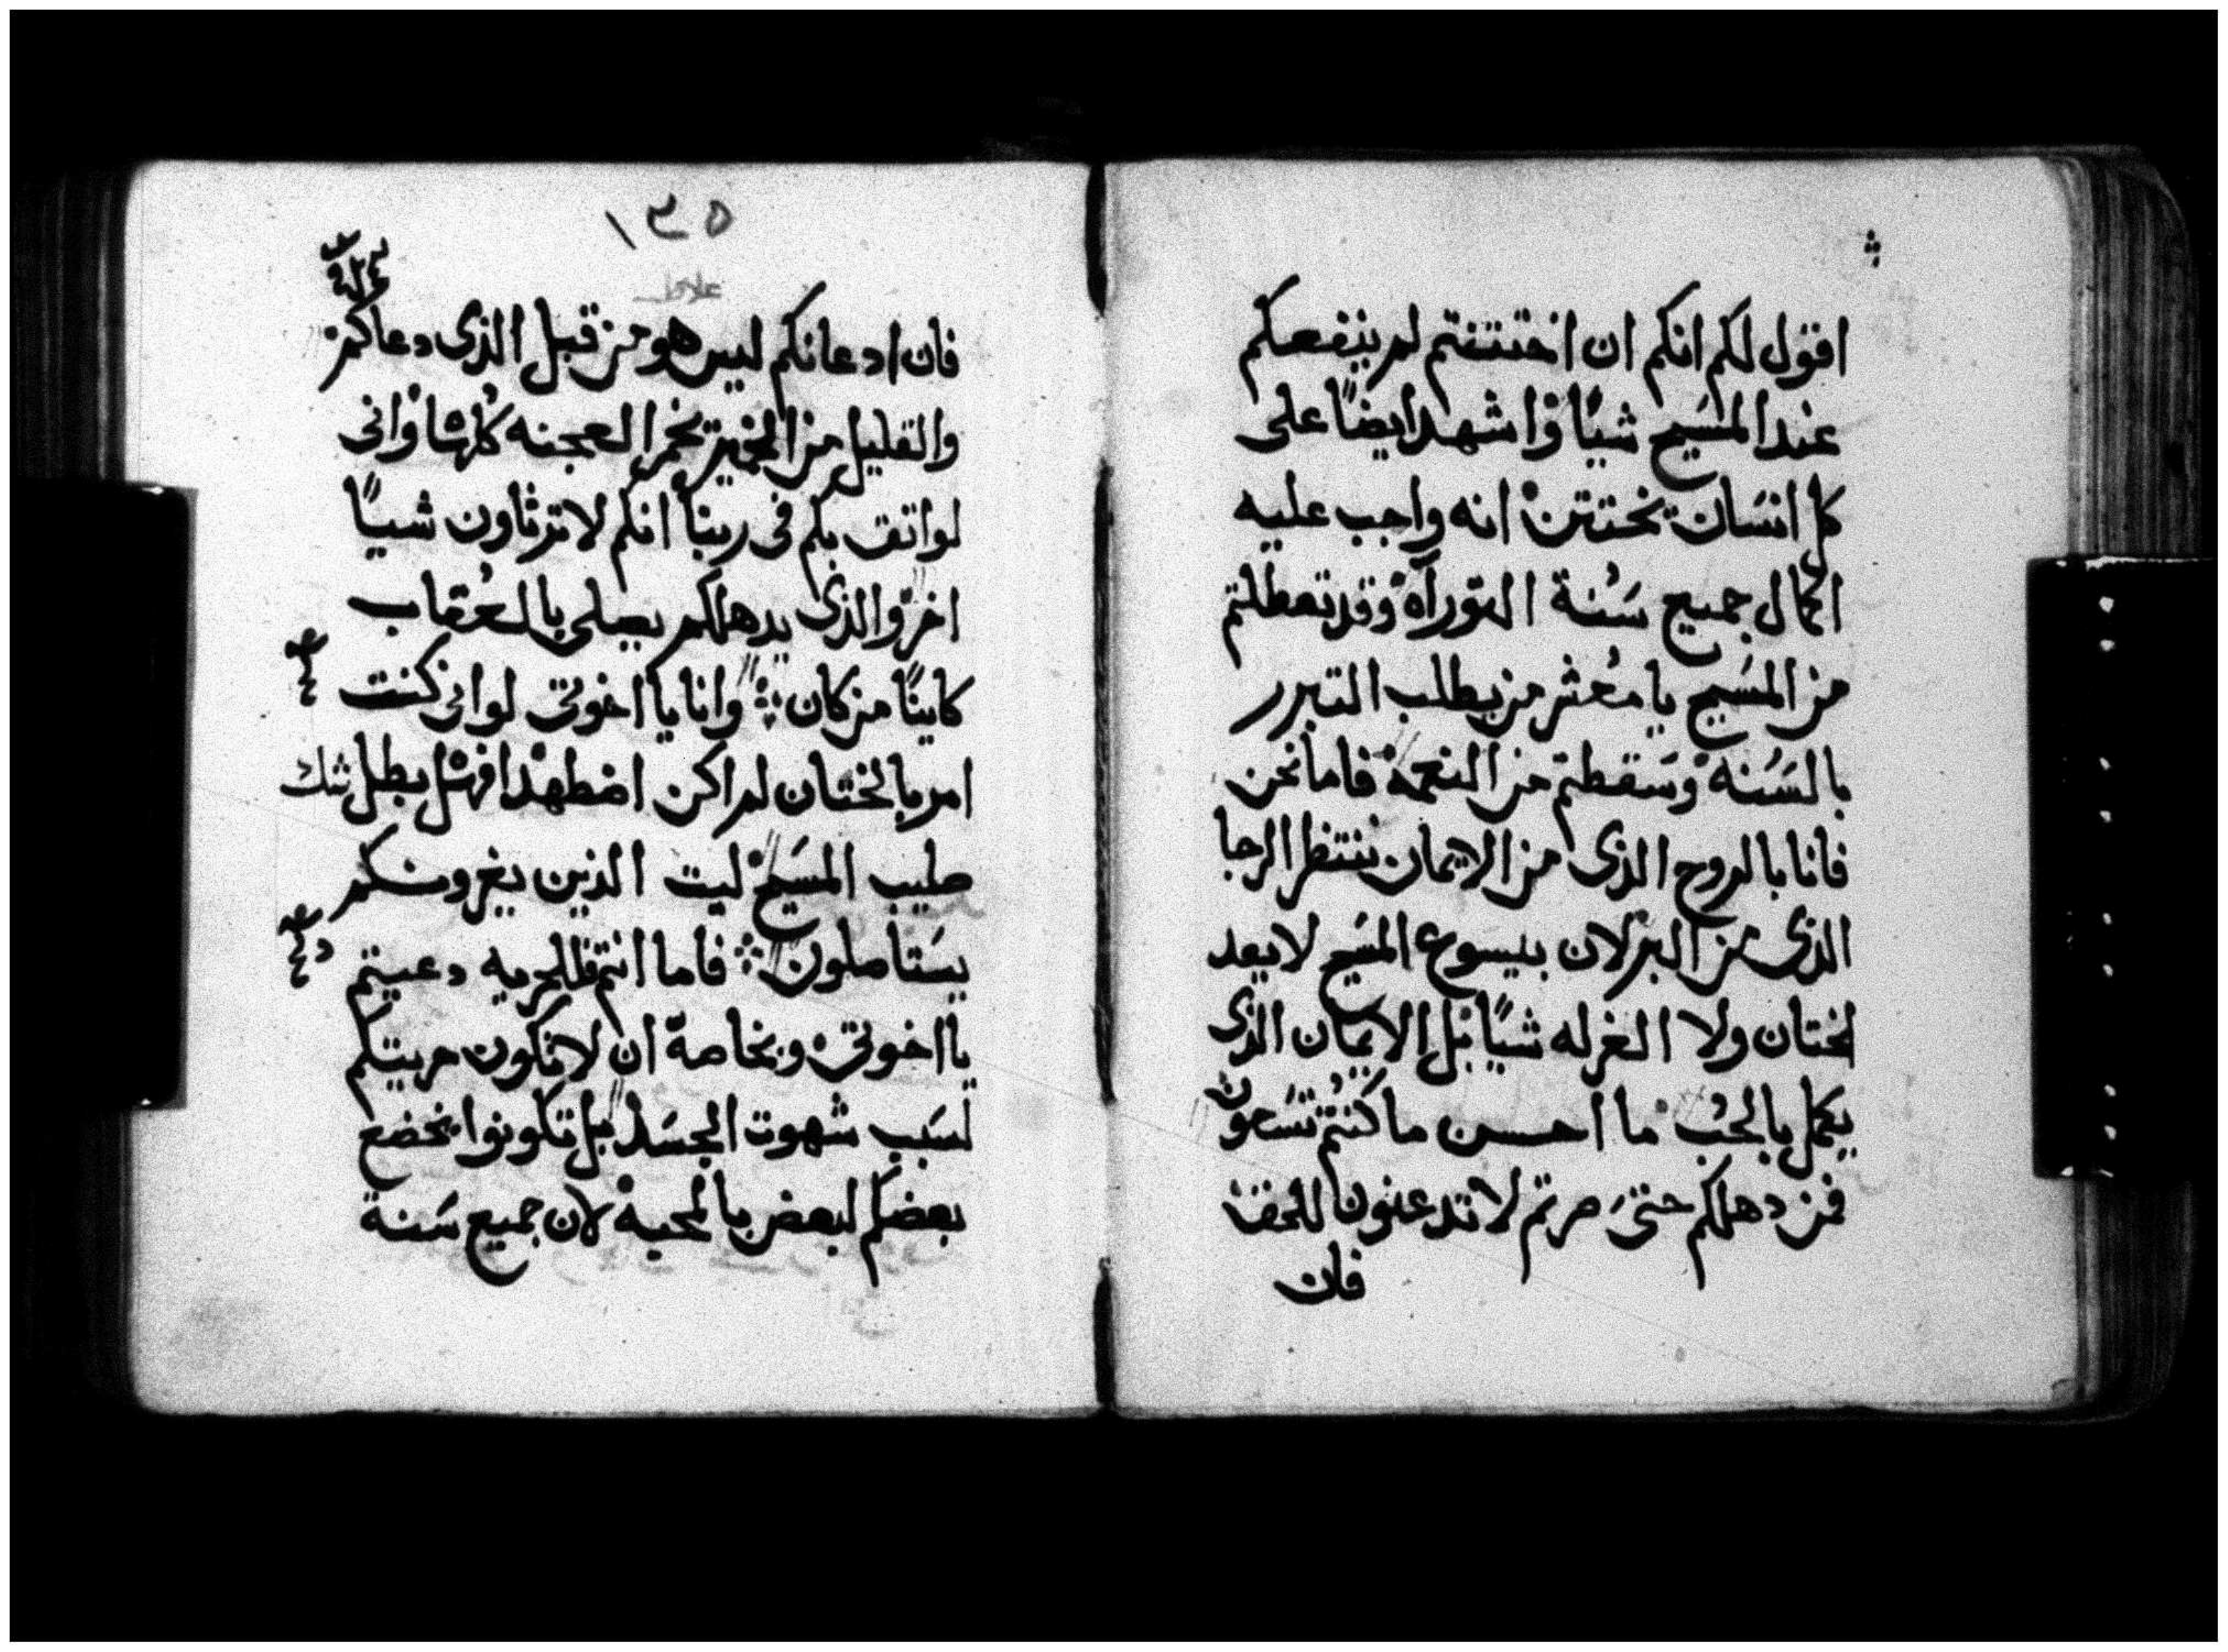 اقول لكم انكم ان اختتنتم لم ينفعكم
عند المسيح شيًا واشهد ايضًا على
كل انسان يختتن انه واجب عليه
اكمال جميع سُنة التوراه وقد تعطلتم
من المسيح يا معشر من يطلب التبرر
بالسُنه وسقطتم من النعمة فاما نحن
فانا بالروح الذى من الايمان ننتظر الرجا
الذى من البر لان بيسوع المسيح لا يعد
لختان ولا الغرله شيًا بل الايمان الذى
يكمل بالحب ما احسن ما كنتم تسعون
فمن دهلكم حتى صرتم لا تدعنون للحق
فان
١٣٥
فان ادعانكم ليس هو من قبل الذى دعاكم
والقليل من الخمير يخمر العجنه كلها وانى
لواثق بكم فى ربنا انكم لا ترتاون شيــًا
اخر والذى يدهلكم يصلى بالعُقاب
كاينًا من كان وانا يا اخوتى لو انى كنت
امر بالختان لم اكن اضطهد افهل بطل شك
صليب المسيح ليت الذين يغرونكم
يستاصلون فاما انتم فللحريه دعيتم
يا اخوتى وبخاصة ان لا تكون حريتكم
لسبب شهوت الجسد بل تكونوا يخضع
بعضكم لبعض بالمحبه لان جميع سنة